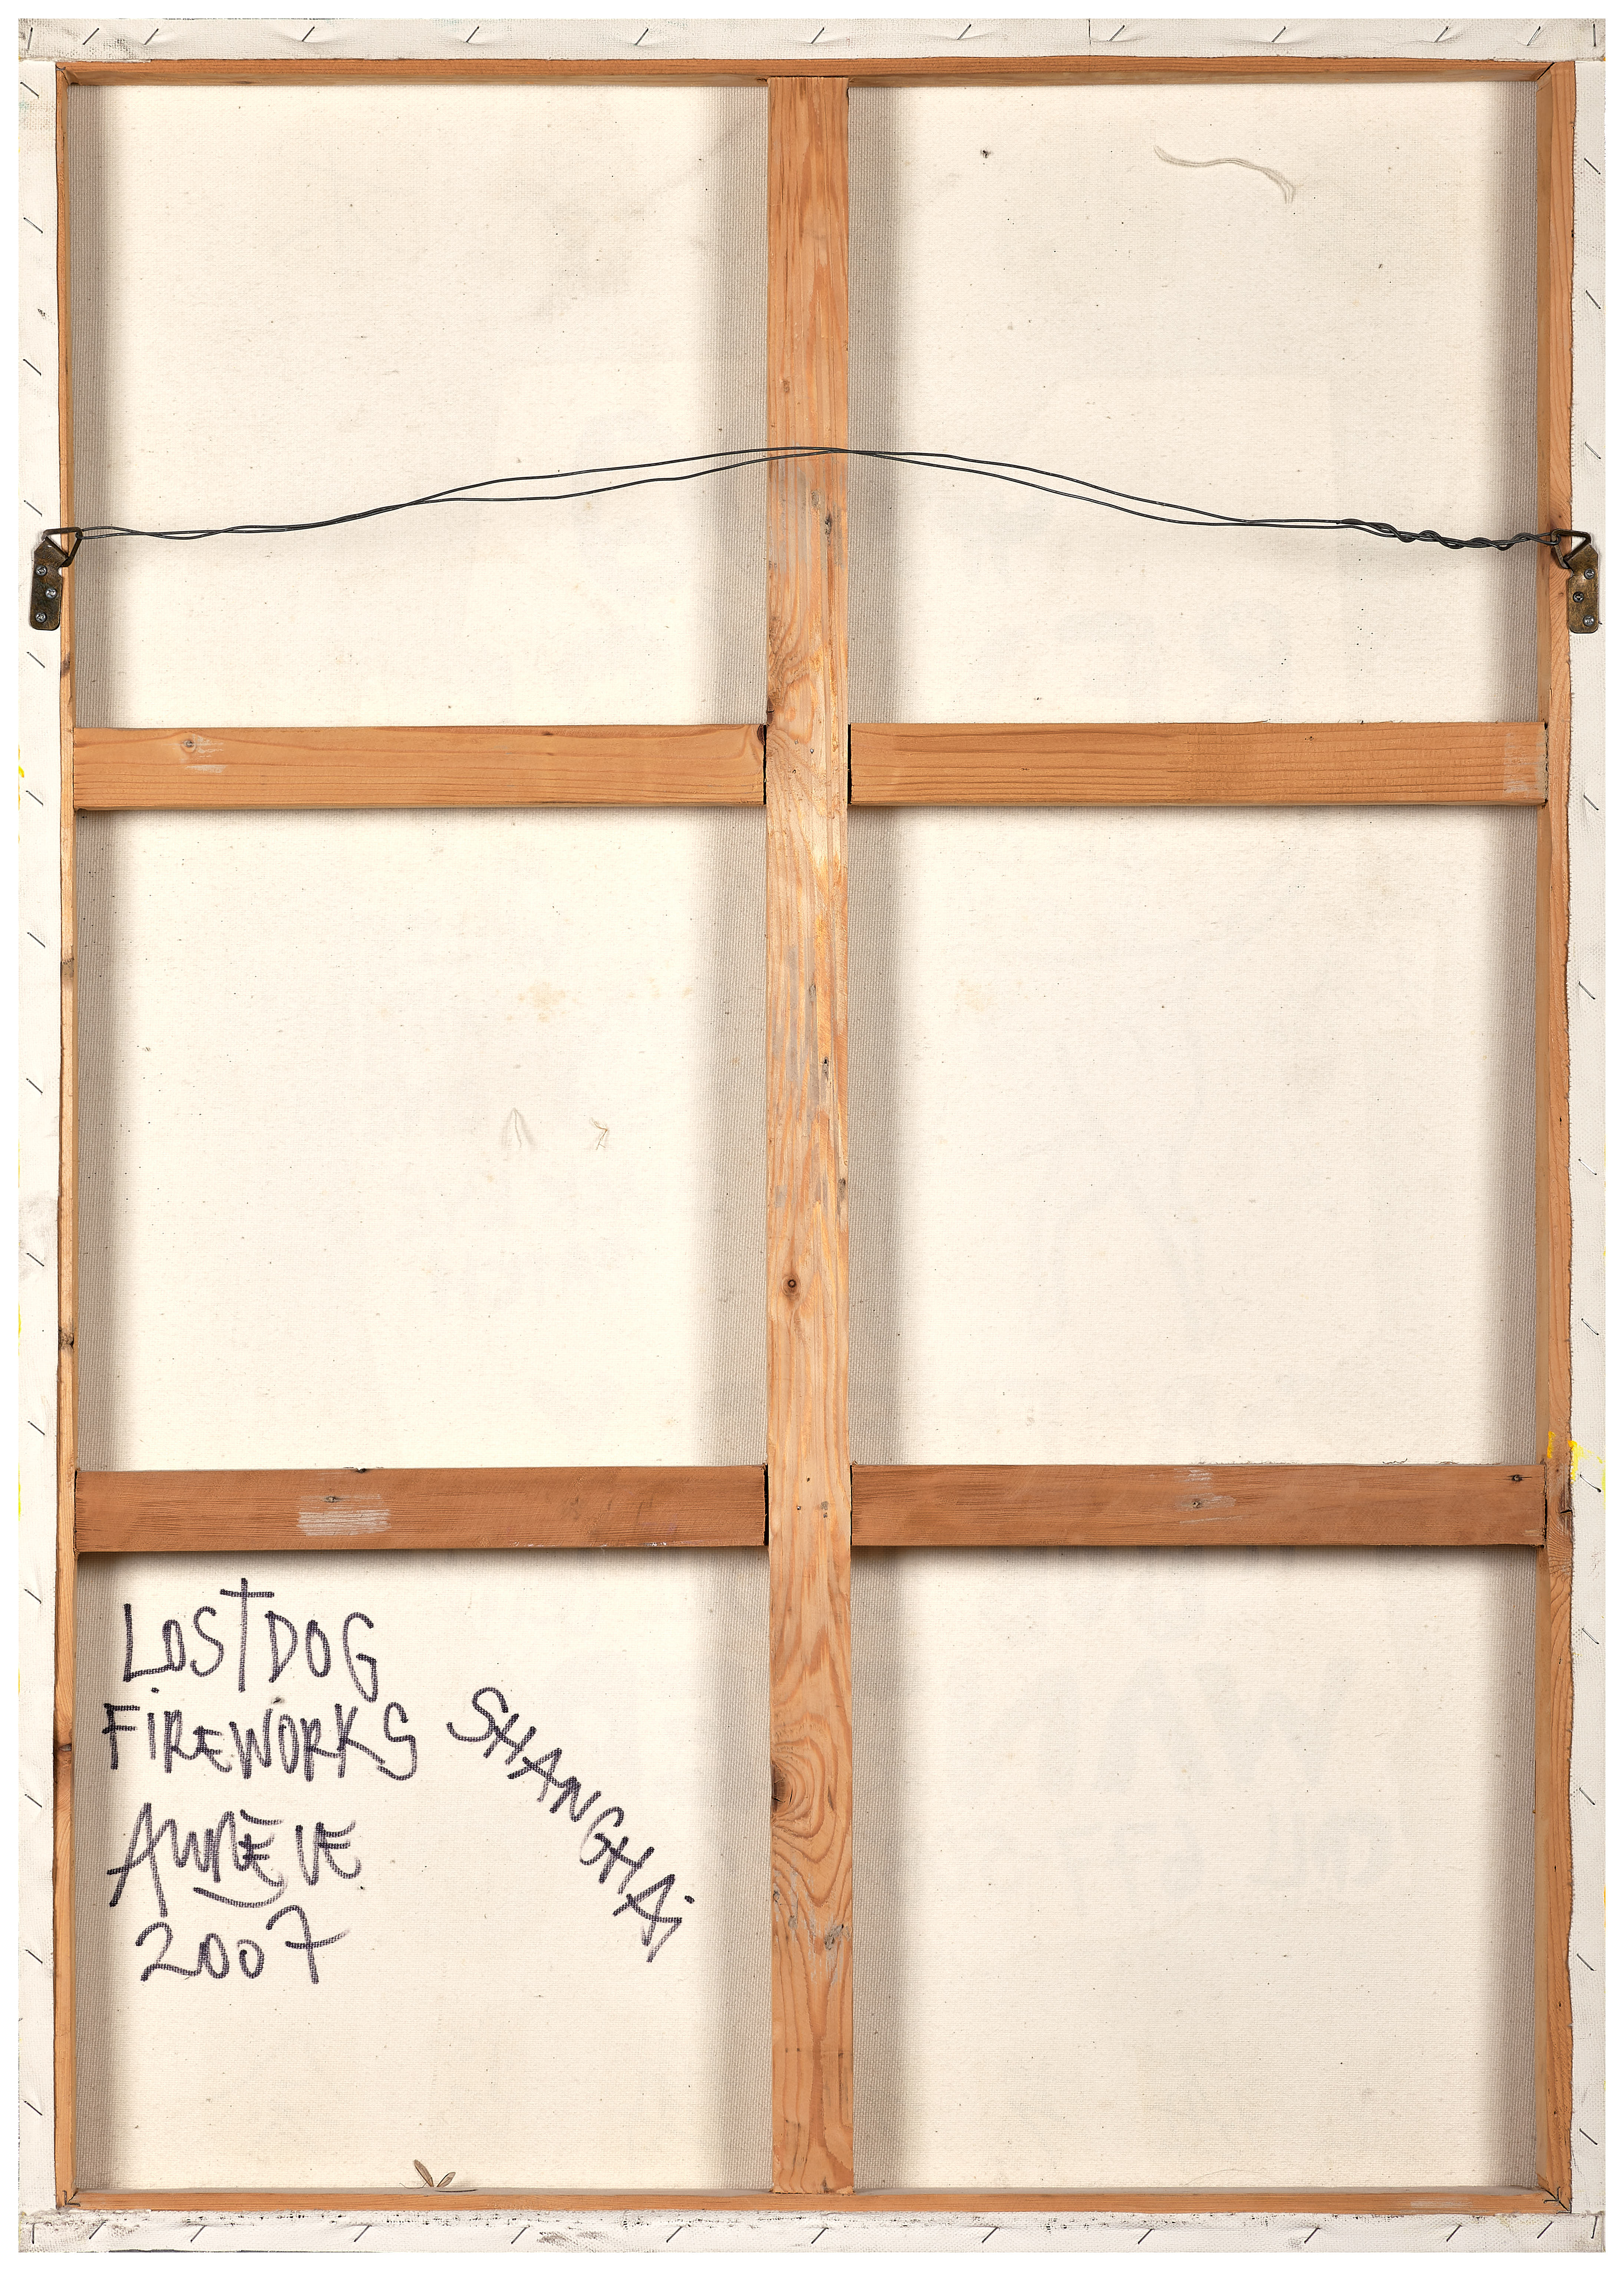 LOST DOG
FiREWORKS
SHANGHAi
2007